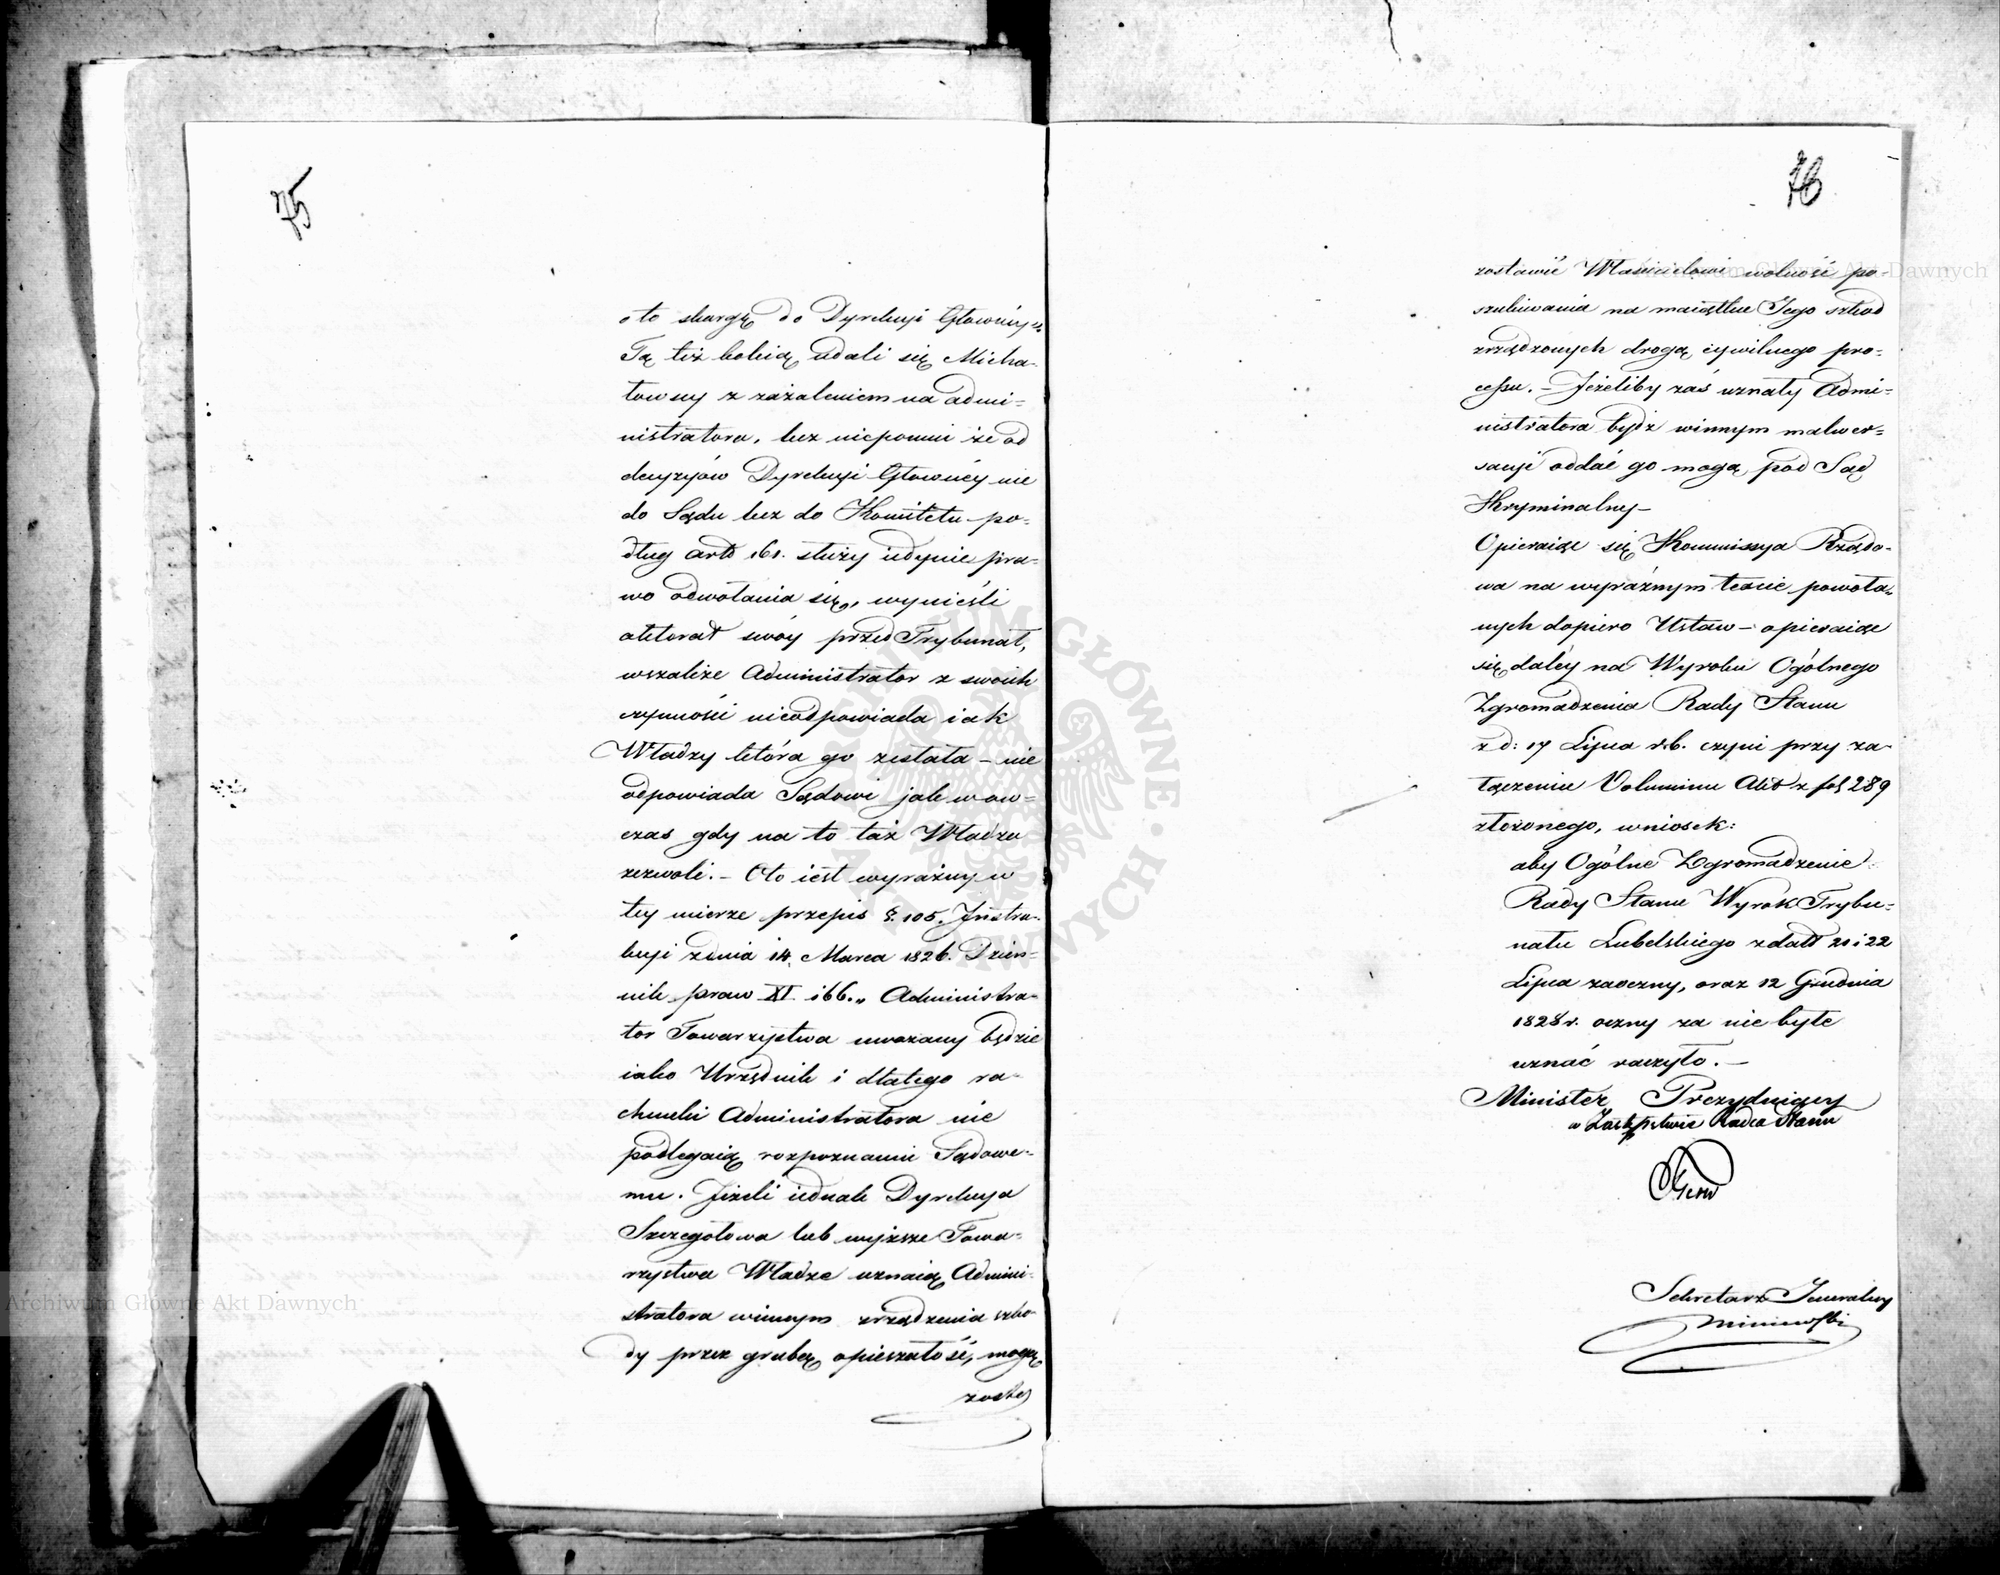 75
o to skargę do Dyrekcyi Głównéy.
Tą też koleią udali się Micha-
łowscy z zażaleniem na admi-
nistratora, lecz niepomni że od
decyzyów Dyrekcyi Głównéy nie
do Sądu lecz do Komitetu po-
dług artł 161. służy iedynie pra-
wo odwołania się, wynieśli
aktorat swóy przed Trybunał,
wszakże Administrator z swoich
czynności nieodpowiada iak
Władzy która go zesłała – nie
odpowiada Sądowi jak wów-
czas gdy na to taż Władza
zezwoli. – Oto iest wyraźny w
tey mierze przepis §. 105. Instru-
kcyi z dnia 14 Marca 1826. Dzien-
nik praw XI. 166. „ Administra-
tor Towarzystwa uważany będzie
iako Urzędnik i dlatego ra-
chunki Administratora nie
podlegaią rozpoznaniu Sądowe-
mu. Jeżeli iednak Dyrekcya
Szczegółowa lub wyższe Towa-
rzystwa Władze uznaią Admini-
stratora winnym zrządzenia szko-
dy przez grubą opieszałość, mogą
zosta
76
zostawić Właścicielowi wolność po-
szukiwania na maiątku Jego szkód
zrządzonych drogą cywilnego pro-
cessu. – Jeżeliby zaś uznały Admi-
nistratora bydź winnym malwer-
sacyi oddać go mogą pod Sąd
Kryminalny –
Opieraiąc się Kommissya Rządo-
wa na wyraźnym texcie powoła-
nych dopiero Ustaw – opieraiąc
się daléy na Wyroku Ogólnego
Zgromadzenia Rady Stanu
z d: 17 Lipca r.b. czyni przy za-
łączeniu Voluminu Akt z fol 289
złożonego, wniosek:
aby Ogólne Zgromadzenie
Rady Stanu Wyrok Trybu-
nału Lubelskiego z datt 21 i 22
Lipca zaoczny, oraz 12 Grudnia
1828 r. oczny za nie byłe
uznać raczyło. –
Minister Prezyduiący
w Zastępstwie Radca Stanu
Sekretarz Jeneralny
Archiwum Główne Akt Dawnych